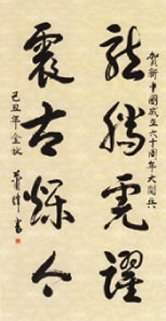 賀新中國成立六十周年大閱兵
龍騰虎躍
震古爍今
己丑年金秋
蕭鋒書